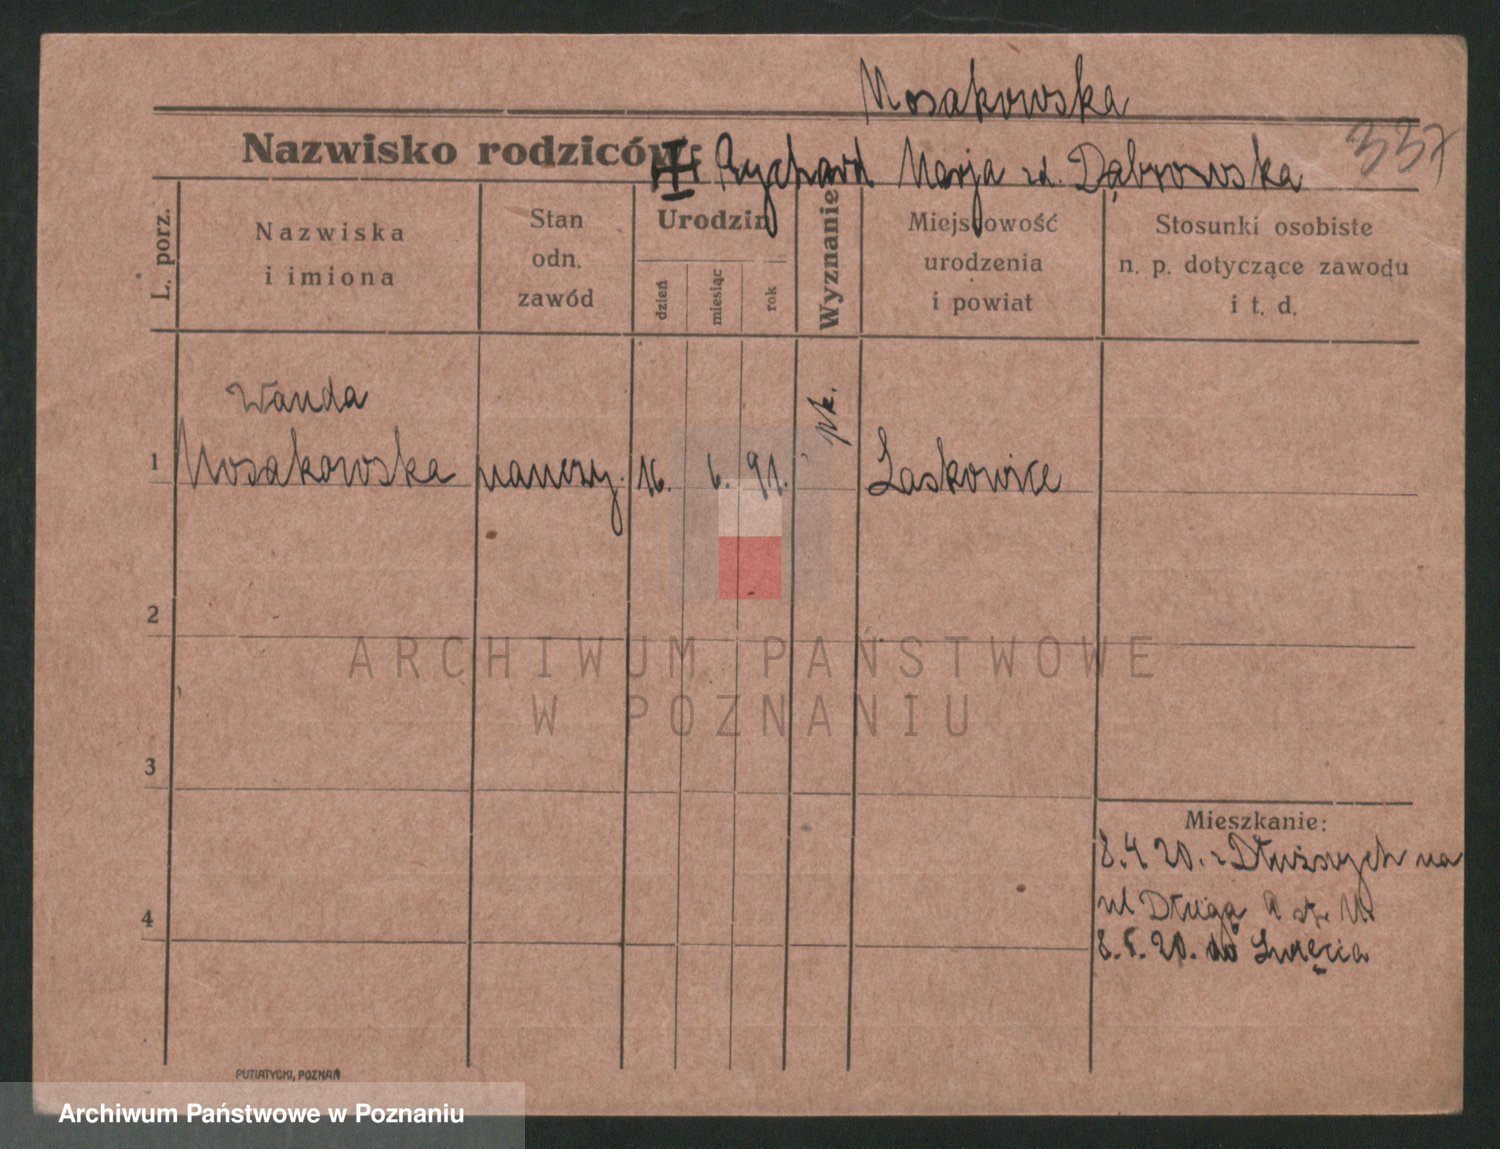 Mosakowska
Nazwisko rodziców: Rychard Marja zd. Dąbrowska 337
L. porz.
Nazwiska
i imiona
Stan
odn.
zawód
Urodzin
dzień
miesiąc
rok
Wyznanie
Miejscowość
urodzenia
i powiat
Stosunki osobiste
n. p. dotyczące zawodu
i t. d.
Wanda
1 Mosakowska nauczy. 16. 6. 91. rk. Laskowice
2
ARCHIWUM PAŃSTWOWE
W POZNANIU
3
Mieszkanie:
8.4.20. z na
ul Długa
4
8.5.20. do
PUTIATYCKI, POZNAŃ
Archiwum Państwowe w Poznaniu